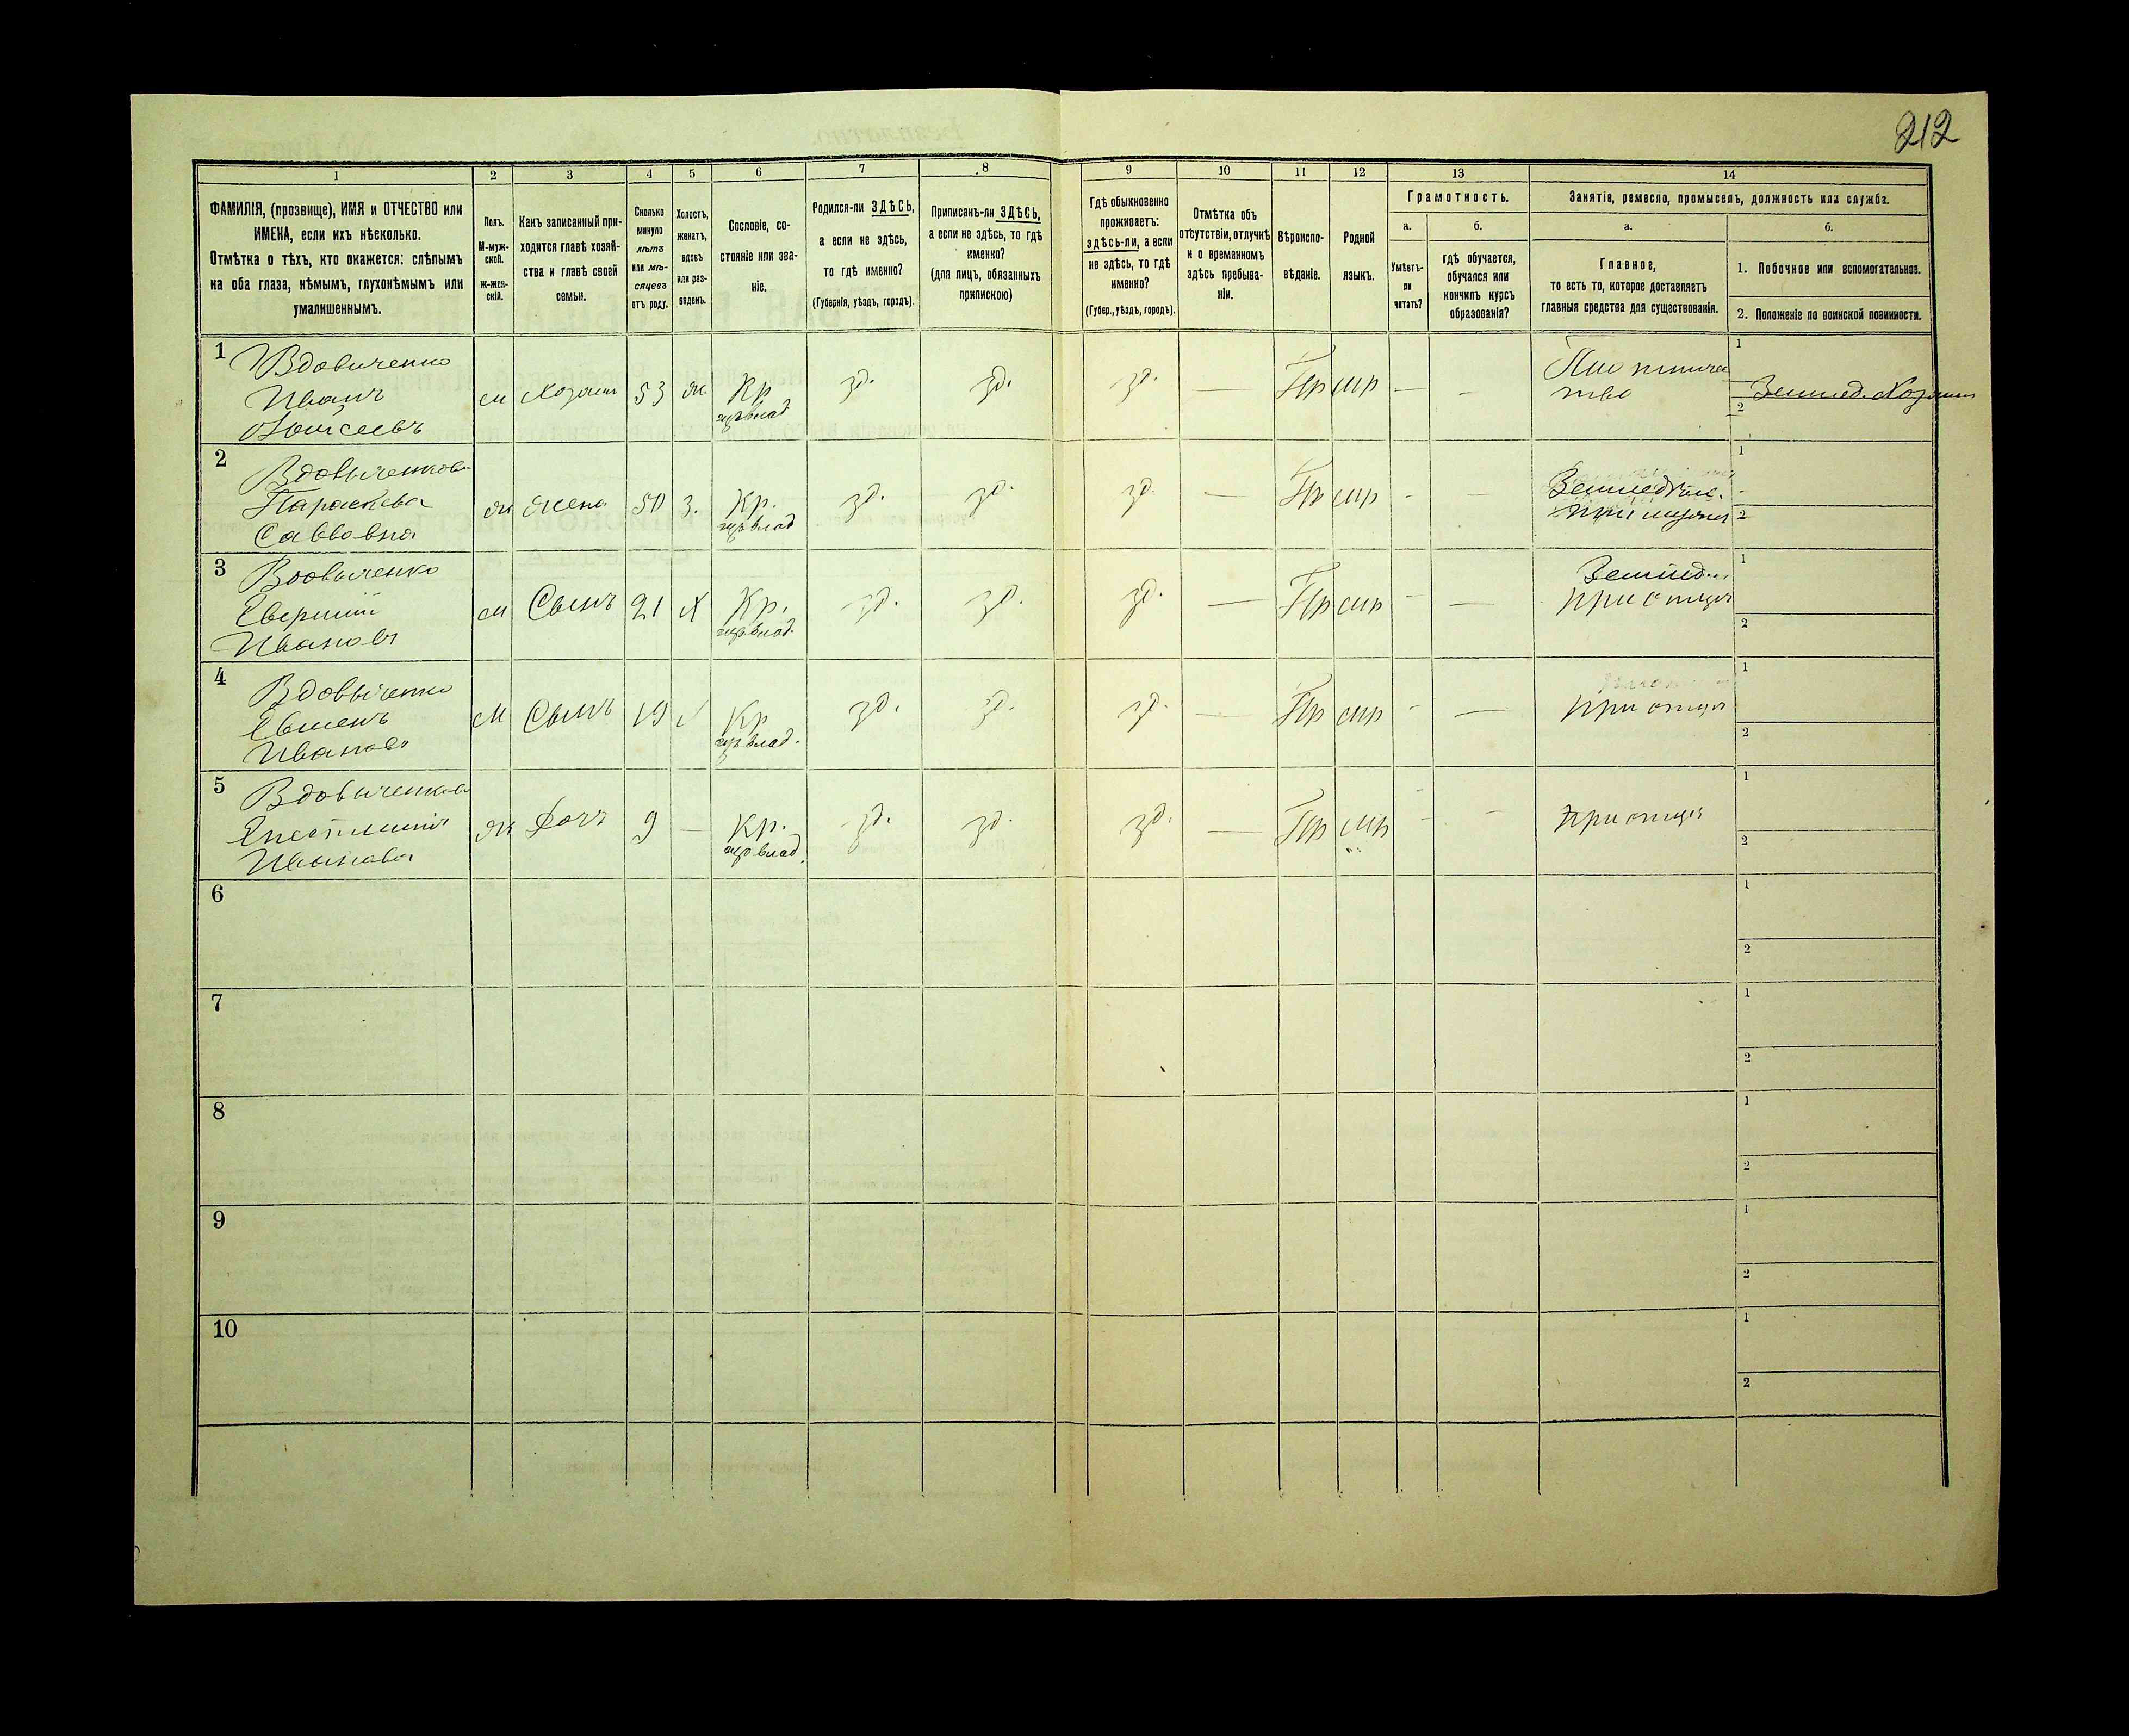 212
1 2 3 4 5 6 7 8 9 10 11 12 13 14
ФАМИЛІЯ, (прозвище), ИМЯ и ОТЧЕСТВО или
ИМЕНА, если ихъ нѣсколько.
Отмѣтка о тѣхъ, кто окажется: слѣпымъ
на оба глаза, нѣмымъ, глухонѣмымъ или
умалишеннымъ.
Полъ.
М-муж-
ской.
Ж-жен-
скій.
Какъ записанный при-
ходится главѣ хозяй-
ства и главѣ своей
семьи.
Сколько
минуло
лѣтъ
или мѣ-
сяцевъ
отъ роду.
Холостъ,
женатъ,
вдовъ
или раз-
веденъ.
Сословіе, со-
стояніе или зва-
ніе.
Родился-ли ЗДѢСЬ,
а если не здѣсь,
то гдѣ именно?
(Губернія, уѣздъ, городъ).
Приписанъ-ли ЗДѢСЬ,
а если не здѣсь, то гдѣ
именно?
(для лицъ, обязанныхъ
припискою)
Гдѣ обыкновенно
проживаетъ:
здѣсь-ли, а если
не здѣсь, то гдѣ
именно?
(Губер., уѣздъ, городъ).
Отмѣтка объ
отсутствіи, отлучкѣ
и о временномъ
здѣсь пребыва-
ніи.
Вѣроиспо-
вѣданіе.
Родной
языкъ.
Грамотность.
а. б.
Умѣетъ-
ли
читать?
гдѣ обучается,
обучался или
кончилъ курсъ
образованія?
Занятія, ремесло, промыселъ, должность или служба.
а. б.
Главное,
то есть то, которое доставляетъ
главныя средства для существованія.
1. Побочное или вспомогательное.
2. Положеніе по воинской повинности.
1 Вдовиченко
Иванъ
м Хозяинъ 53 ж. Кр зд. зд. зд. — Пр мр — —
Земled. Хозяин
1
2
2 Вдовиченкова
Параскева
Саввовна
ж жена 50 з. Кр. зд. зд. зд. — Пр мр - —
Земледѣл.
1
2
3 Вдовиченко
Иванов
м Сынъ 21 х Кр. зд. зд. зд. — Пр мр - —
при отцѣ
1
2
4 Вдовиченко
Иванов
м Сынъ 19 Кр зд. зд. зд. — Пр мр - —
при отцѣ
1
2
5 Вдовиченкова
Иванова
ж Дочь 9 — Кр. зд. зд. зд. — Пр мр - -
при отцѣ
1
2
6
1
2
7
1
2
8
1
2
9
1
2
10
1
2